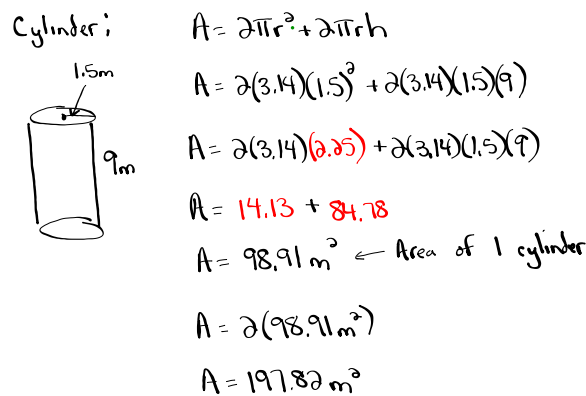 Cylinder:
A = 2πr² + 2πrh
1.5m
A = 2(3.14)(1.5)² + 2(3.14)(1.5)(9)
9m
A = 2(3.14)(2.25) + 2(3.14)(1.5)(9)
A = 14.13 + 84.78
A = 98.91 m² ← Area of 1 cylinder
A = 2(98.91m²)
A = 197.82 m²